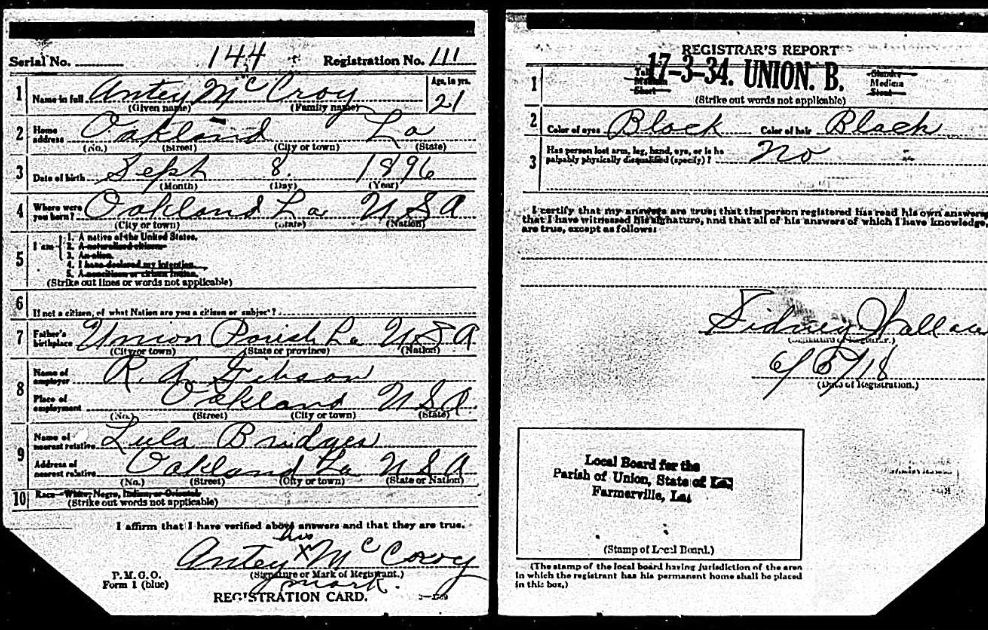 Serial No. 144 Registration No. 111
1 Name in full Antey McCroy Age, in yrs. 21
(Given name) (Family name)
2 Home address Oakland La
(No.) (Street) (City or town) (State)
3 Date of birth Sept 8 1896
(Month) (Day) (Year)
4 Where were you born? Oakland La USA
(City or town) (State) (Nation)
5 I am
1. A native of the United States.
2. A naturalized citizen
3. An alien.
4. I have declared my intention
5. A noncitizen or citizen Indian.
(Strike out lines or words not applicable)
6 If not a citizen, of what Nation are you a citizen or subject?
7 Father's birthplace Union Parish La USA
(City or town) (State or province) (Nation)
8 Name of employer R. A. Gibson
Place of employment Oakland USA
(No.) (Street) (City or town) (State)
9 Name of nearest relative Lula Bridges
Address of nearest relative Oakland La USA
(No.) (Street) (City or town) (State or Nation)
10 Race—White, Negro, Indian, or Oriental
(Strike out words not applicable)
I affirm that I have verified above answers and that they are true.
his
Antey X McCroy
(Signature or Mark of Registrant.)
mark.
P.M.G.O.
Form 1 (blue)
REGISTRATION CARD.
REGISTRAR'S REPORT
17-3-34. UNION. B.
1 Tall Medium Short Slender Medium Stout
(Strike out words not applicable)
2 Color of eyes Black Color of hair Black
3 Has person lost arm, leg, hand, eye, or is he palpably physically disqualified (specify)? No
I certify that my answers are true; that the person registered has read his own answers,
that I have witnessed his signature, and that all of his answers of which I have knowledge,
are true, except as follows:
Sidney Wallace
(Signature of Registrar.)
6/5/18
(Date of Registration.)
Local Board for the
Parish of Union, State of La.
Farmerville, La.
(Stamp of Local Board.)
(The stamp of the local board having jurisdiction of the area
in which the registrant has his permanent home shall be placed
in this box.)